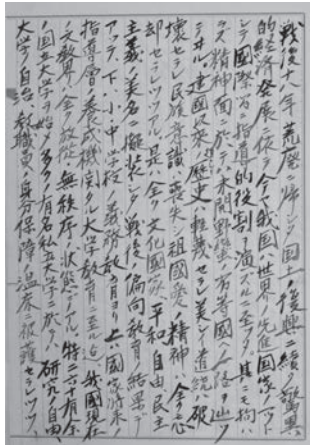 戦後十八年荒廃ニ帰シタ国土ノ復興ニ続ク驚異
的経済発展ニ依ラ今ヤ我国ハ世界ノ先進国家トアッ
シテ国際間ニ指導的役割ヲ演ズルニ至ル其ニモ拘ハ
ラズ精神面ニ於テハ未開野蛮ノ劣等国ヘノ一路ヲ辿ツ
テヰル建国以来ノ歴史ハ軽蔑セラレ美シイ道統ハ破
壊セラレ民族意識ハ喪失シ祖国愛ノ精神ハ全ク忘
却セラレツツアル是ハ全ク文化国家平和自由民主
主義ノ美名ニ擬装シタ戦後ノ偏向教育ノ結果デ
アッテ下小中学校ノ義務教育ヨリ上ハ国家将来ノ
指導層ノ養成機関タル大学教育ニ至ル迄我国現在
ノ文教界ハ全ク放従無秩序ノ状態デアル特ニ六十有余
ノ国立大学ヲ始メ多クノ有名私立大学ニ於テハ研究ノ自由、
大学ノ自治、教職員ノ身分保障ノ温床ニ被護セラレツツ、